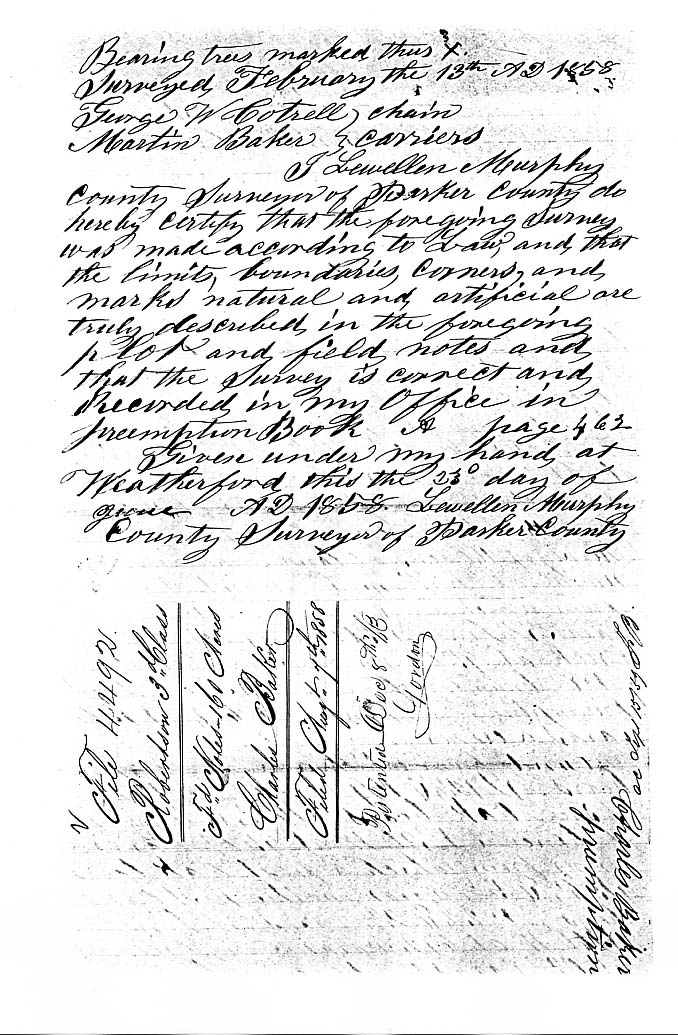 Bearing trees marked thus X.
Surveyed February the 13th AD 1858
George W Cotrell } chain
Martin Baker } carriers
I Lewellen Murphy
county Surveyor of Parker County do
hereby certify that the foregoing Survey
was made according to Law, and that
the limits, boundaries, corners, and
marks natural and artificial are
truly described in the foregoing
plot and field notes and
that the Survey is correct and
Recorded in my Office in
preemption Book A page 462
Given under my hand at
Weatherford this the 23d day of
June AD 1858. Lewellen Murphy
County Surveyor of Parker County
File 4492
Robertson 3d Class
Fd Notes 160 Acres
Charles Baker
Filed Augt 9th 1858
Patented Dec 8th
Gordon
Charles Baker